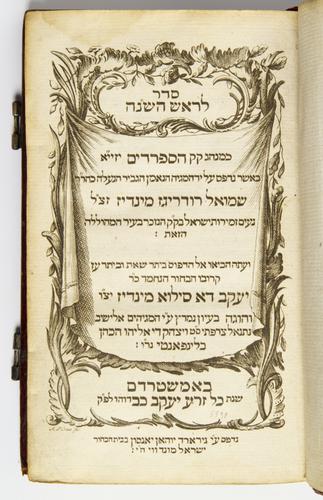 סדר
לראש השנה
כמנהג קק הספרדים יזייא
כאשר נדפס על יד המגיה הנאמן הגביר הנעלה כהרר
שמואל רודריגז מינדיז זצ״ל
נעים זמירות ישראל בקק הנזכר בעיר המהוללה
הזאת :
ועתה הביאו אל הדפוס ביתר שאת וביתר עז
קרובו הבחור הנחמד כר
יעקב דא סילוא מינדיז יצו
והוגה בעיון נמרץ ע״י המגיהים אלישיב
נתנאל צרפתי סט ויצהק די אליהו הכהן
בלינפאנטי נרו :
באמשטרדם
שנת כל זרע יעקב כבדוהו לפ״ק
נדפס ע״י גירארד יוהאן יאנסון בבית הבחור
ישראל מונדווי הי״ו :